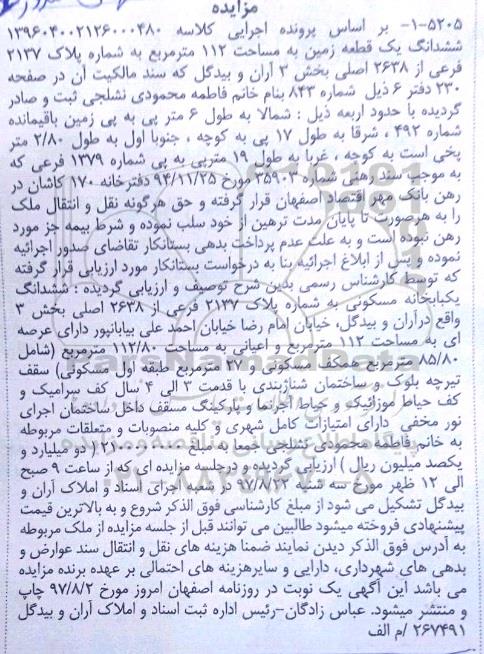 مزایده
۵۲۰۵-۱- بر اساس پرونده اجرایی کلاسه ۱۳۹۶۰۴۰۰۲۱۲۶۰۰۰۴۸۰
ششدانگ یک قطعه زمین به مساحت ۱۱۲ مترمربع به شماره پلاک ۲۱۳۷
فرعی از ۲۶۳۸ اصلی بخش ۳ آران و بیدگل که سند مالکیت آن در صفحه
۲۳۰ دفتر ۶ ذیل شماره ۸۴۳ بنام خانم فاطمه محمودی نشلجی ثبت و صادر
گردیده با حدود اربعه ذیل : شمالا به طول ۶ متر پی به پی زمین باقیمانده
شماره ۴۹۲ ، شرقا به طول ۱۷ پی به کوچه ، جنوبا اول به طول ۲/۸۰ متر
پخی است به کوچه ، غربا به طول ۱۹ مترپی به پی شماره ۱۳۷۹ فرعی که
به موجب سند رهنی شماره ۳۵۹۰۳ مورخ ۹۴/۱۱/۲۵ دفترخانه ۱۷۰ کاشان در
رهن بانک مهر اقتصاد اصفهان قرار گرفته و حق هرگونه نقل و انتقال ملک
را به هرصورت تا پایان مدت ترهین از خود سلب نموده و شرط بیمه جز مورد
رهن نبوده است و به علت عدم پرداخت بدهی بستانکار تقاضای صدور اجرائیه
نموده و پس از ابلاغ اجرائیه بنا به درخواست بستانکار مورد ارزیابی قرار گرفته
که توسط کارشناس رسمی بدین شرح توصیف و ارزیابی گردیده : ششدانگ
یکبابخانه مسکونی به شماره پلاک ۲۱۳۷ فرعی از ۲۶۳۸ اصلی بخش ۳
واقع درآران و بیدگل، خیابان امام رضا خیابان احمد علی بیابانپور دارای عرصه
ای به مساحت ۱۱۲ مترمربع و اعیانی به مساحت ۱۱۲/۸۰ مترمربع (شامل
۸۵/۸۰ مترمربع همکف مسکونی و ۲۷ مترمربع طبقه اول مسکونی) سقف
تیرچه بلوک و ساختمان شناژبندی با قدمت ۳ الی ۴ سال کف سرامیک و
کف حیاط موزائیک و حیاط آجرنما و پارکینگ مسقف داخل ساختمان اجرای
نور مخفی دارای امتیازات کامل شهری و کلیه منصوبات و متعلقات مربوطه
به خانم فاطمه محمودی نشلجی جمعا به مبلغ ۲۱۰۰۰۰۰۰۰۰ ( دو میلیارد و
یکصد میلیون ریال ) ارزیابی گردیده و درجلسه مزایده ای که از ساعت ۹ صبح
الی ۱۲ ظهر مورخ سه شنبه ۹۷/۸/۲۲ در شعبه اجرای اسناد و املاک آران و
بیدگل تشکیل می شود از مبلغ کارشناسی فوق الذکر شروع و به بالاترین قیمت
پیشنهادی فروخته میشود طالبین می توانند قبل از جلسه مزایده از ملک مربوطه
به آدرس فوق الذکر دیدن نمایند ضمنا هزینه های نقل و انتقال سند عوارض و
بدهی های شهرداری، دارایی و سایرهزینه های احتمالی بر عهده برنده مزایده
می باشد این آگهی یک نوبت در روزنامه اصفهان امروز مورخ ۹۷/۸/۲ چاپ
و منتشر میشود. عباس زادگان-رئیس اداره ثبت اسناد و املاک آران و بیدگل
۲۶۷۴۹۱ /م الف